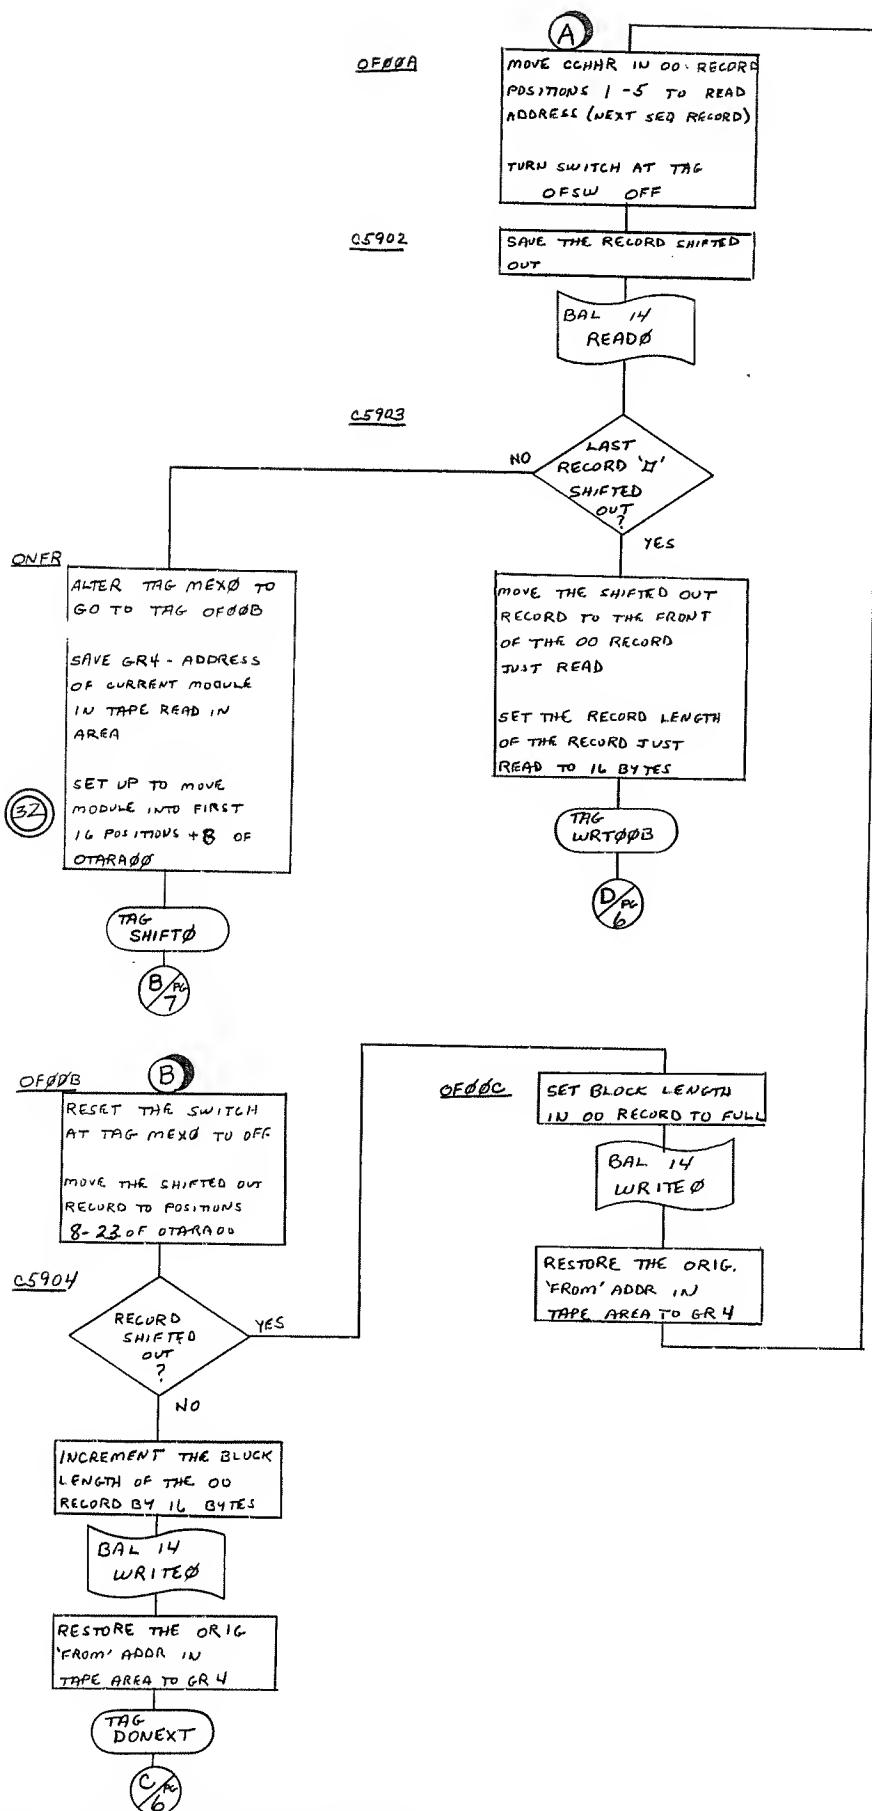 A
OFØØA
MOVE CCHHR IN 00 RECORD
POSITIONS 1-5 TO READ
ADDRESS (NEXT SEQ RECORD)
TURN SWITCH AT TAG
OFSW OFF
C5902
SAVE THE RECORD SHIFTED
OUT
BAL 14
READØ
C5903
LAST
RECORD '¤'
SHIFTED
OUT
?
NO
YES
ONFR
ALTER TAG MEXØ TO
GO TO TAG OFØØB
SAVE GR4 - ADDRESS
OF CURRENT MODULE
IN TAPE READ IN
AREA
SET UP TO MOVE
MODULE INTO FIRST
16 POSITIONS +8 OF
OTARAØØ
32
TAG
SHIFTØ
B/PG
7
MOVE THE SHIFTED OUT
RECORD TO THE FRONT
OF THE 00 RECORD
JUST READ
SET THE RECORD LENGTH
OF THE RECORD JUST
READ TO 16 BYTES
TAG
WRTØØB
D/PG
6
B
OFØØB
RESET THE SWITCH
AT TAG MEXØ TO OFF
MOVE THE SHIFTED OUT
RECORD TO POSITIONS
8-23 OF OTARA00
C5904
RECORD
SHIFTED
OUT
?
YES
NO
INCREMENT THE BLOCK
LENGTH OF THE 00
RECORD BY 16 BYTES
BAL 14
WRITEØ
RESTORE THE ORIG
'FROM' ADDR IN
TAPE AREA TO GR 4
TAG
DONEXT
C/PG
6
OFØØC
SET BLOCK LENGTH
IN 00 RECORD TO FULL
BAL 14
WRITEØ
RESTORE THE ORIG.
'FROM' ADDR IN
TAPE AREA TO GR 4